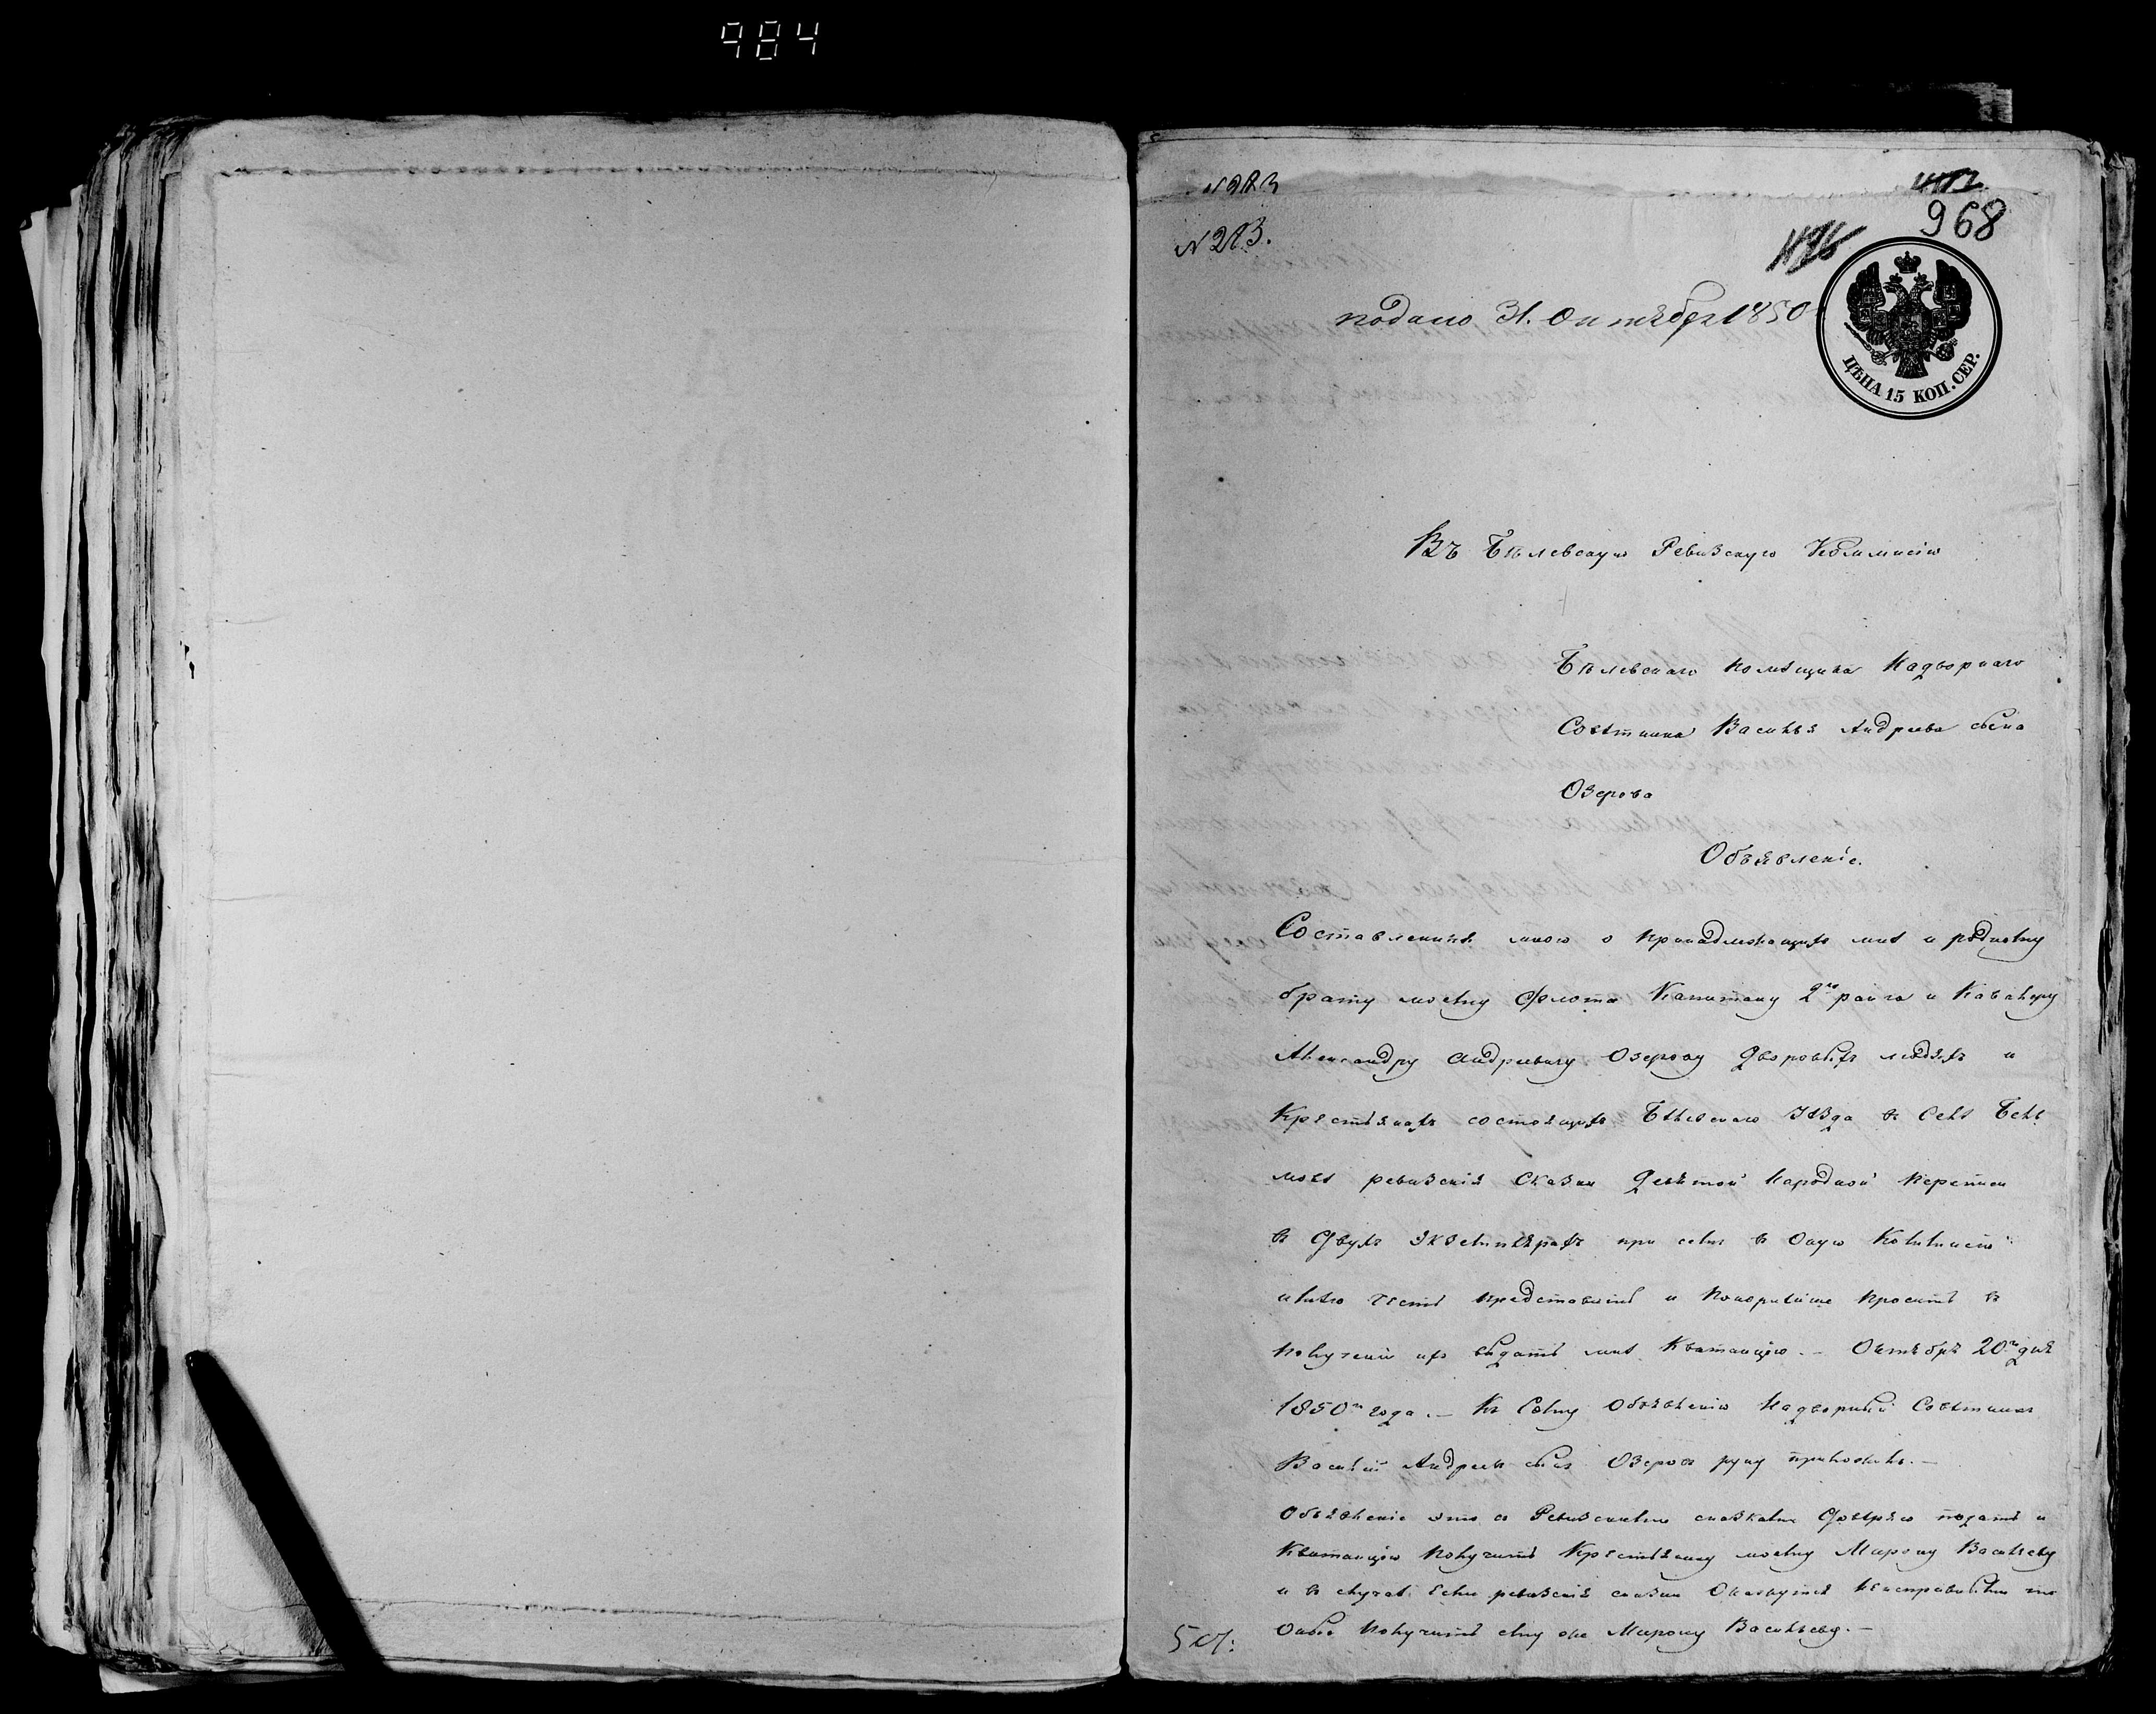 984
N 283
N 283.
968
подано 31. Октября 1850
ЦѢНА 15 КОП. СЕР.
Въ Бѣлевскую Ревизскую Коммисію
Бѣлевскаго помѣщика Надворнаго
Совѣтника Василья Андреева сына
Озерова
Объявленіе.
Составленныя мною о принадлежащихъ мнѣ и родному
брату моему Флота Капитану 2го ранга и Кавалеру
Александру Андреевичу Озерову Дворовыхъ людяхъ и
Крестьянахъ состоящихъ Бѣлевскаго Уѣзда въ Селѣ
ревизскія Сказки Девятой Народной Переписи
въ Двухъ Экземплярахъ при семъ въ Оную Коммисію
имѣю честь представить и покорнѣйше просить въ
полученіи ихъ выдать мнѣ Квитанцію. — Октября 20го дня
1850го года. — Къ Сему Объявленію Надворный Совѣтникъ
Василій Андреевъ сынъ Озеровъ руку приложилъ. —
Объявленіе это съ Ревизскими сказками Довѣряю подать и
Квитанцію получить Крестьянину моему Мирону Васильеву
и въ случаѣ если ревизскія сказки Окажутся неисправными то
Оныя получить ему же Мирону Васильеву. —